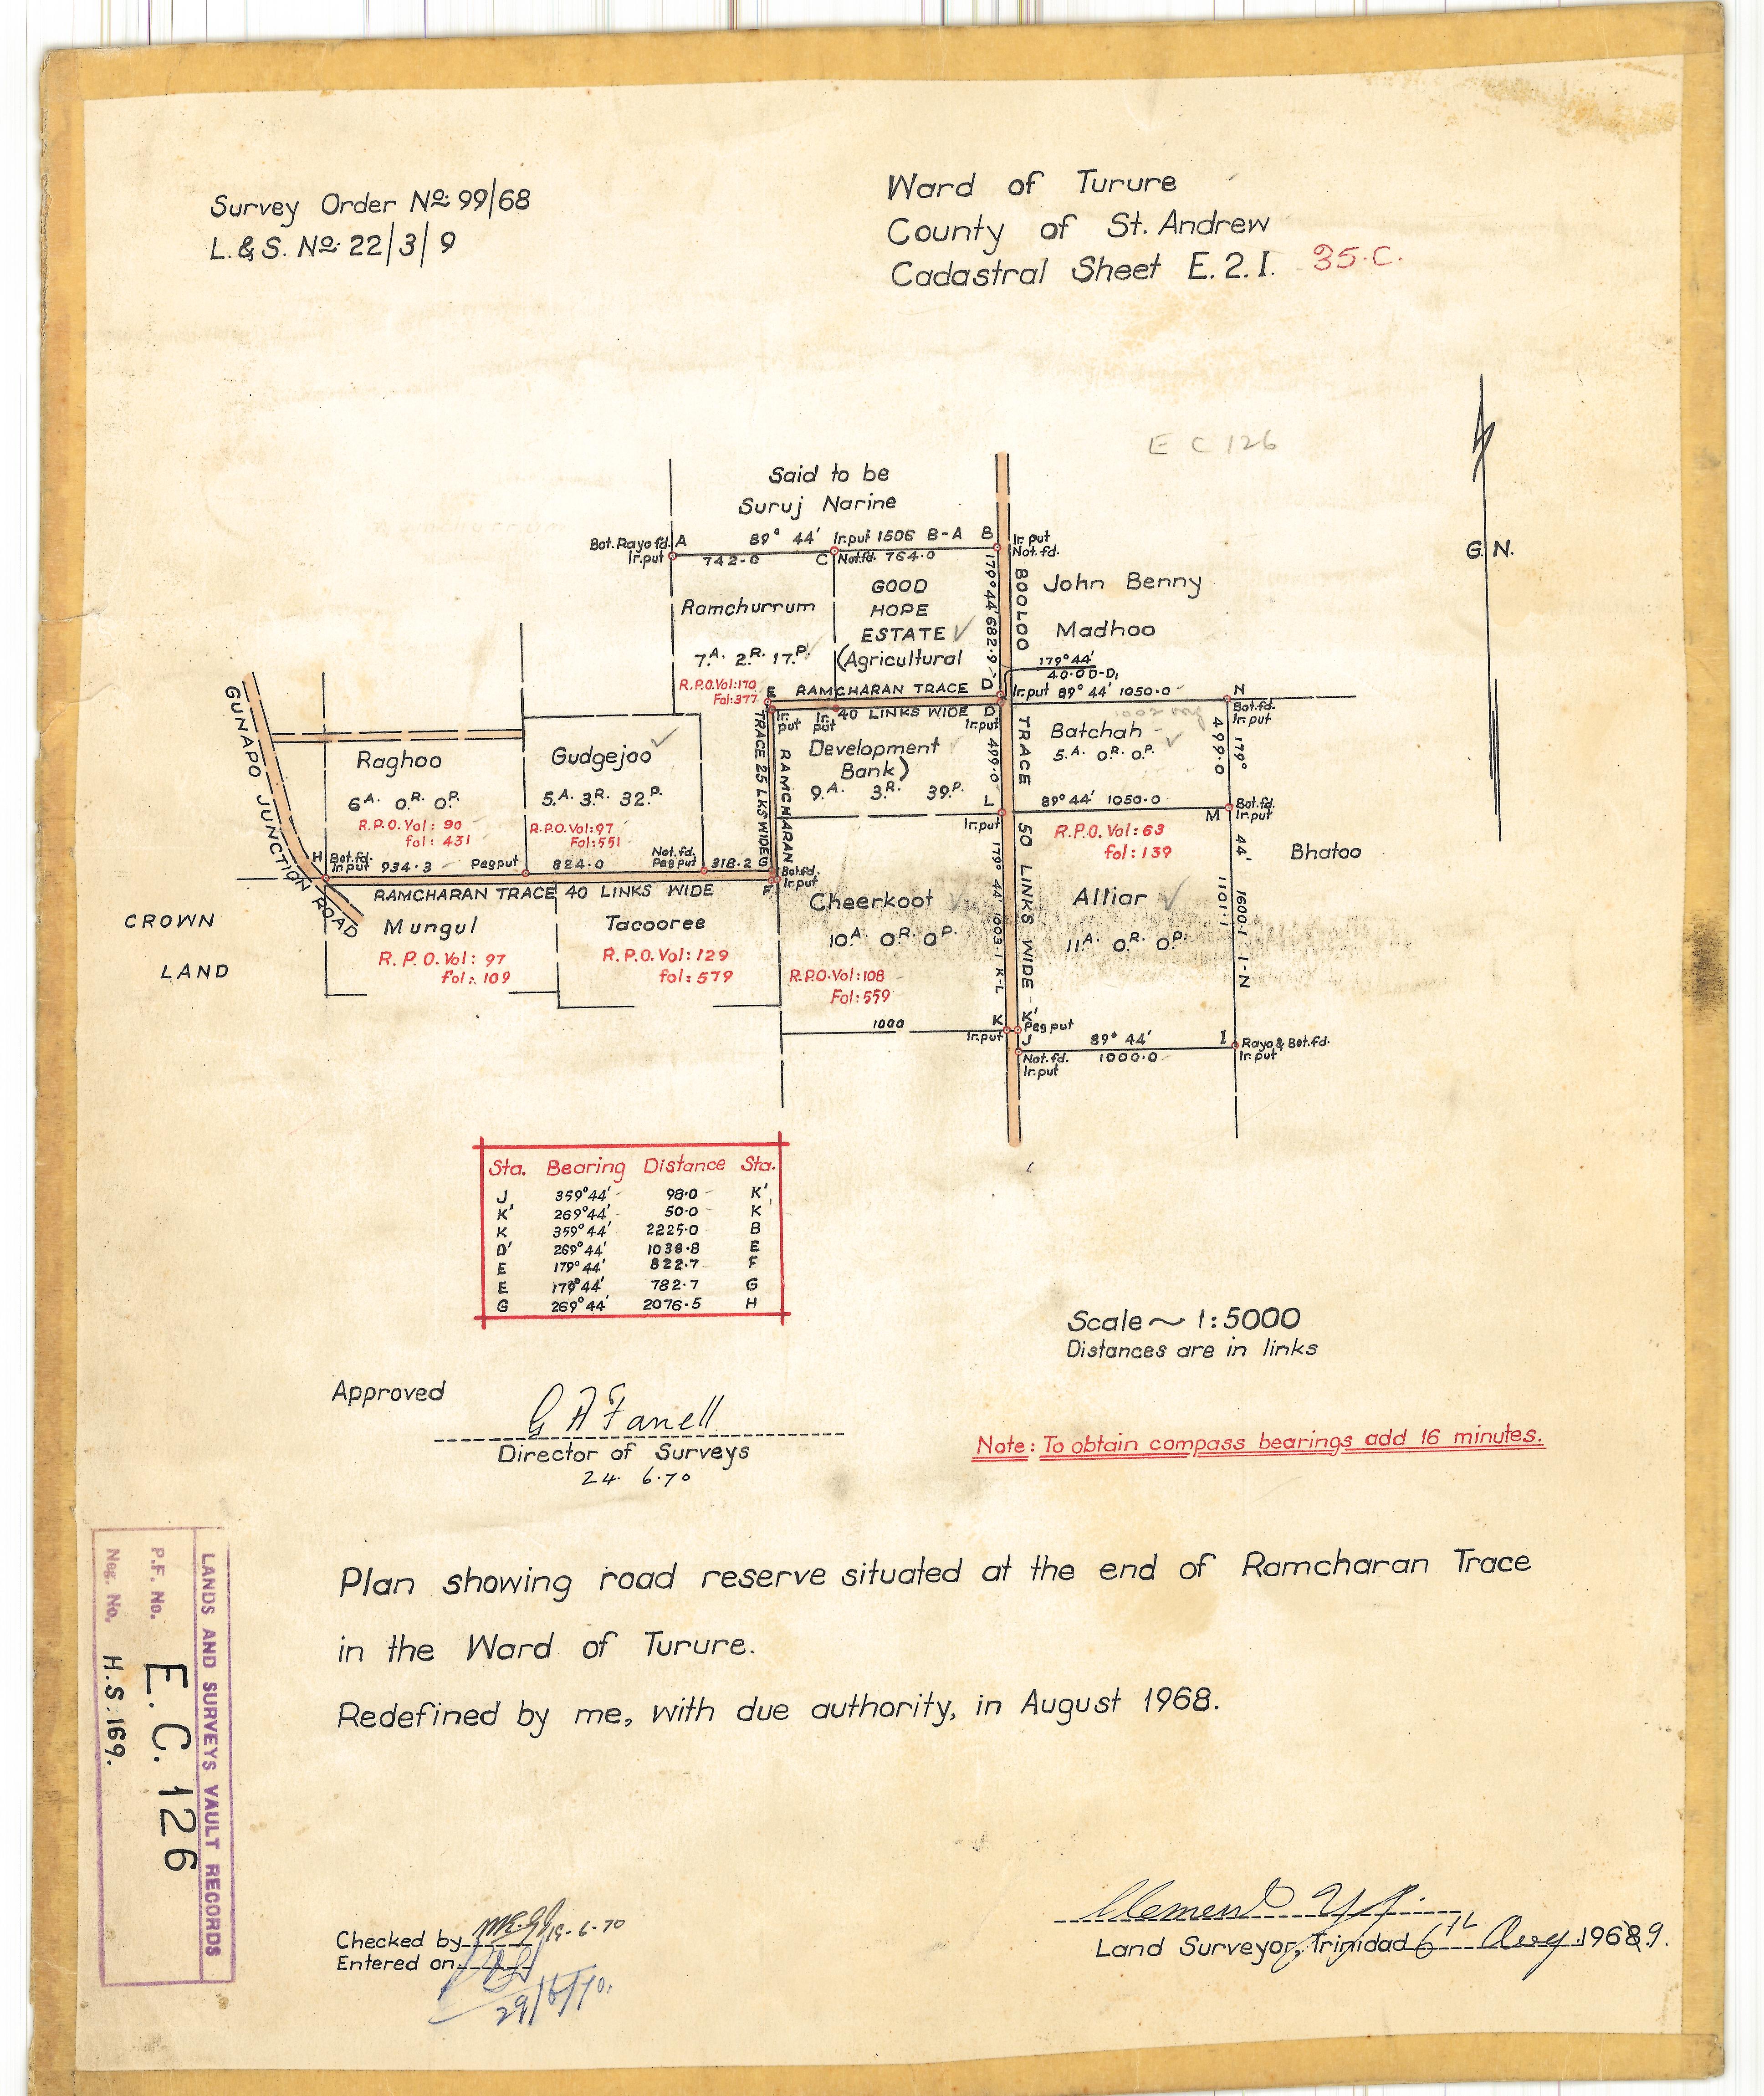 Survey Order No: 99/68
L. & S. No: 22/3/9
Ward of Turure
County of St. Andrew
Cadastral Sheet E. 2. I. 35.C.
E C 126
Said to be
Suruj Narine
G. N.
Bot. Rayo fd. A
Ir. put
89° 44' Ir. put 1506 B-A B
742·0 C Not fd. 764·0
Ir. put
Not. fd.
179° 44' 682·9
BOOLOO
TRACE
50 LINKS WIDE
GOOD
HOPE
ESTATE
(Agricultural
John Benny
Madhoo
Ramchurrum
7A. 2R. 17P.
R.P.O. Vol: 170
Fol: 377
179° 44'
40·0 D-D,
E RAMCHARAN TRACE D'
40 LINKS WIDE D
Ir. put
Ir. put
Ir. put
Ir. put 89° 44' 1050·0 N
Bot. fd.
Ir. put
Development
Bank)
9A. 3R. 39P.
499·0
Batchah
5A. 0R. 0P.
499·0
179°
44'
TRACE 25 LKS WIDE
RAMCHARAN
GUNAPO JUNCTION ROAD
Raghoo
6A. 0R. 0P.
R.P.O. Vol: 90
fol: 431
Gudgejoo
5A. 3R. 32P.
R.P.O. Vol: 97
Fol: 551
L
Ir. put
89° 44' 1050·0
M
Bot. fd.
Ir. put
R.P.O. Vol: 63
fol: 139
Bhatoo
H Bot. fd.
Ir. put 934·3 Peg put 824·0
Not. fd.
Peg put 318·2 G
F
Bot. fd.
Ir. put
RAMCHARAN TRACE 40 LINKS WIDE
CROWN
LAND
Mungul
R. P. O. Vol: 97
fol: 109
Tacooree
R. P. O. Vol: 129
fol: 579
Cheerkoot
10A. 0R. 0P.
R.P.O. Vol: 108
Fol: 559
179° 44' 1003·1 K-L
Alliar
11A. 0R. 0P.
1101·1
1600·1 I-N
1000
K
Ir. put
K'
Peg put
J
Not. fd.
Ir. put
89° 44'
1000·0
I Rayo & Bot. fd.
Ir. put
Sta. Bearing Distance Sta.
J 359° 44' 98·0 K'
K' 269° 44' 50·0 K
K 359° 44' 2225·0 B
D' 269° 44' 1038·8 E
E 179° 44' 822·7 F
E 179° 44' 782·7 G
G 269° 44' 2076·5 H
Scale ~ 1:5000
Distances are in links
Approved
Director of Surveys
24. 6.70
Note: To obtain compass bearings add 16 minutes.
Plan showing road reserve situated at the end of Ramcharan Trace
in the Ward of Turure.
Redefined by me, with due authority, in August 1968.
LANDS AND SURVEYS VAULT RECORDS
P.F. No. E. C. 126
Neg. No. H.S. 169.
Checked by 19-6-70
Entered on
29/6/70.
Clement
Land Surveyor, Trinidad 6th Aug 1969.